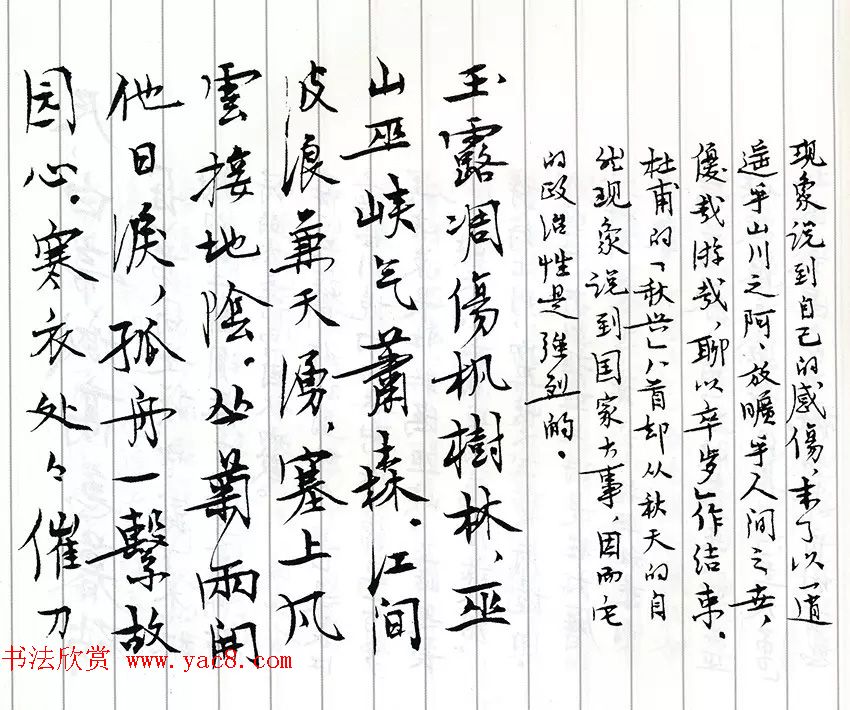 现象说到自己的感傷，末了以「逍
遥乎山川之阿、放曠乎人间之世，
優哉游哉，聊以卒岁」作结束。
杜甫的「秋兴」八首却从秋天的自
然现象说到国家大事，因而它
的政治性是强烈的。
玉露凋傷枫樹林，巫
山巫峡气蕭森。江间
波浪兼天湧，塞上风
雲接地陰。丛菊兩開
他日淚，孤舟一繫故
园心。寒衣处々催刀
书法欣赏 www.yac8.com